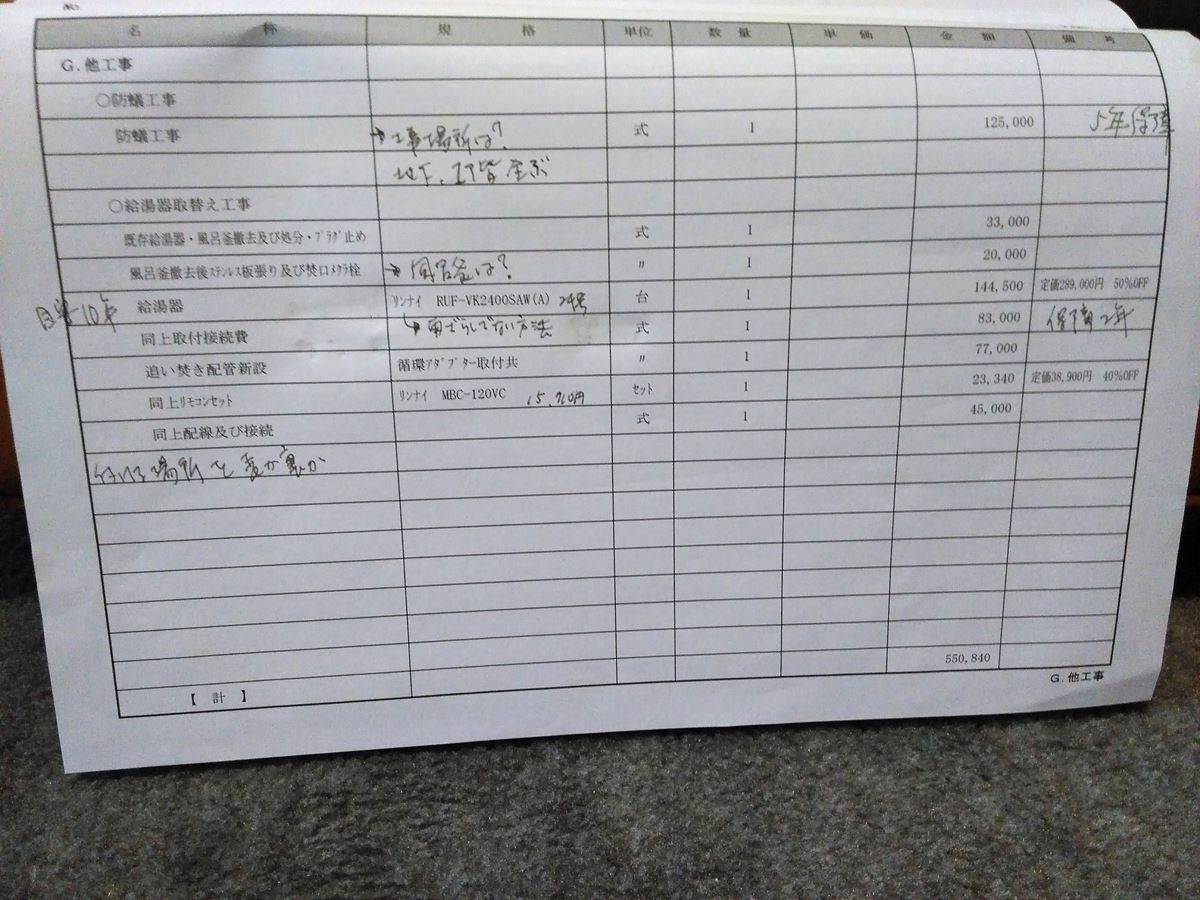 名 称 規 格 単位 数 量 単 価 金 額 備 考
G. 他工事
○防蟻工事
防蟻工事 →工事場所は? 式 1 125,000 5年保障
地下、1階全ぶ
○給湯器取替え工事
既存給湯器・風呂釜撤去及び処分・プラグ止め 式 1 33,000
風呂釜撤去後ステンレス板張り及び焚口メクラ栓 → 風呂釜は? 〃 1 20,000
目安10年 給湯器 リンナイ RUF-VK2400SAW(A) 24号 台 1 144,500 定価289,000円 50%OFF
同上取付接続費 式 1 83,000 保障2年
追い焚き配管新設 循環アダプター取付共 〃 1 77,000
同上リモコンセット リンナイ MBC-120VC セット 1 23,340 定価38,900円 40%OFF
同上配線及び接続 式 1 45,000
付ける場所
【 計 】 550,840
G. 他工事